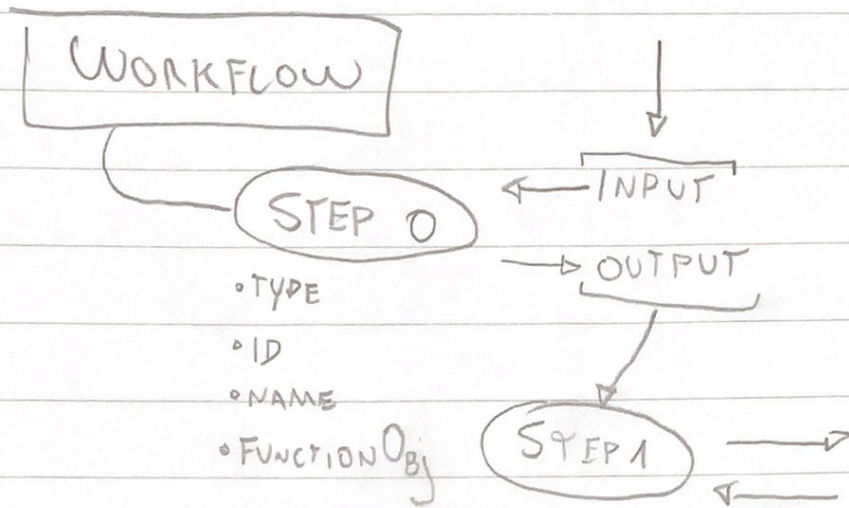 WORKFLOW
INPUT
STEP 0
OUTPUT
• TYPE
• ID
• NAME
• FUNCTIONObj
STEP 1